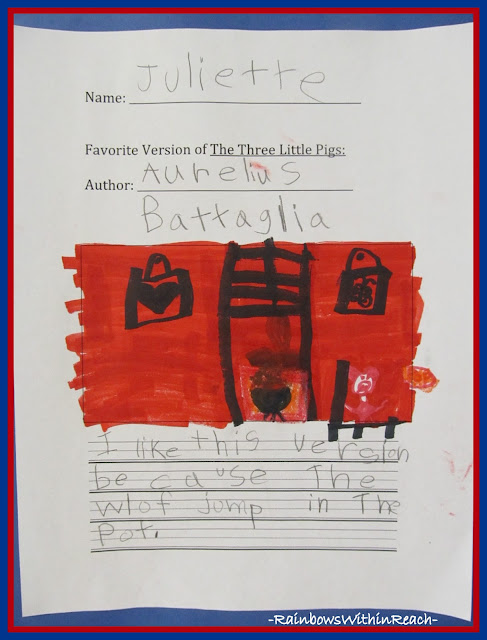 Name: Juliette
Favorite Version of The Three Little Pigs:
Author: Aurelius
Battaglia
I like this version
be ca use The
wlof jump in The
Pot.
-RainbowsWithinReach-